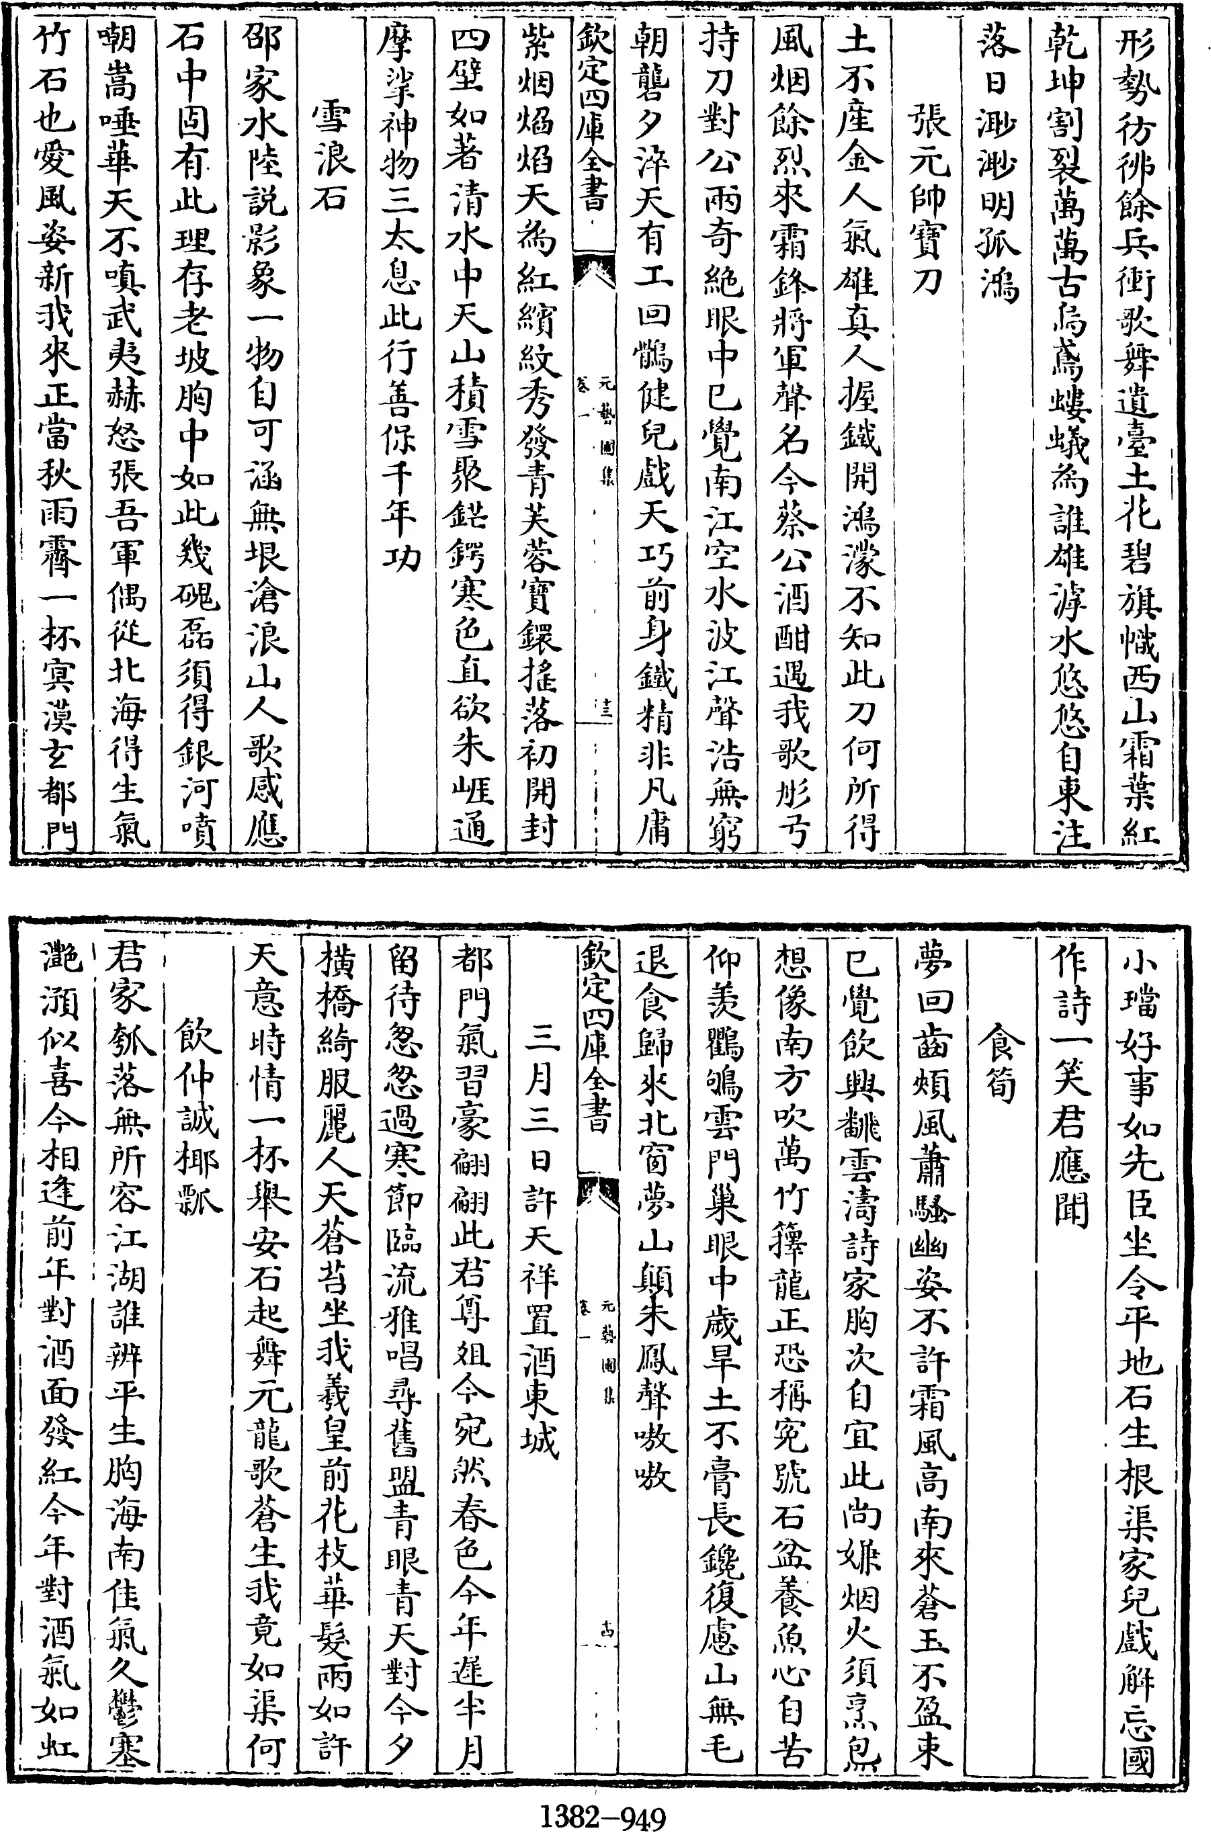 形勢彷彿餘兵衝歌舞遺臺土花碧旗幟西山霜葉紅
乾坤割裂萬萬古烏鳶螻蟻為誰雄滹水悠悠自東注
落日渺渺明孤鴻
張元帥寶刀
土不産金人氣雄真人握鐵開鴻濛不知此刀何所得
風烟餘烈來霜鋒將軍聲名今蔡公酒酣遇我歌彤弓
持刀對公兩奇絶眼中已覺南江空水波江聲浩無窮
朝礱夕淬天有工回鶻健兒戲天巧前身鐵精非凡庸
欽定四庫全書
元藝圃集
卷一
十三
紫烟熖熖天為紅繽紋秀發青芙蓉寶鐶搖落初開封
四壁如著清水中天山積雪聚鋩鍔寒色直欲朱崕通
摩挲神物三太息此行善保千年功
雪浪石
邵家水陸説影象一物自可涵無垠滄浪山人歌感應
石中固有此理存老坡胸中如此幾磈磊須得銀河噴
嘲嵩唾華天不嗔武夷赫怒張吾軍偶從北海得生氣
竹石也愛風姿新我來正當秋雨霽一杯㝠漠玄都門
小璫好事如先臣坐令平地石生根渠家兒戲解忘國
作詩一笑君應聞
食筍
夢回齒頰風蕭騷幽姿不許霜風高南來蒼玉不盈束
已覺飲興翻雲濤詩家胸次自宜此尚嫌烟火須烹炰
想像南方吹萬竹籜龍正恐稱寃號石盆養魚心自苦
仰羨鸛鴝雲門巢眼中歲旱土不膏長鑱復慮山無毛
退食歸來北窗夢山顛朱鳳聲嗷嗷
欽定四庫全書
元藝圃集
卷一
十四
三月三日許天祥置酒東城
都門氣習豪翩翩此君尊俎今宛然春色今年遲半月
留待忽忽過寒節臨流雅唱尋舊盟青眼青天對今夕
横橋綺服麗人天蒼苔坐我羲皇前花枝華髮兩如許
天意時情一杯舉安石起舞元龍歌蒼生我竟如渠何
飲仲誠椰瓢
君家瓠落無所容江湖誰辨平生胸海南佳氣久鬱塞
灔澦似喜今相逢前年對酒面發紅今年對酒氣如虹
1382-949